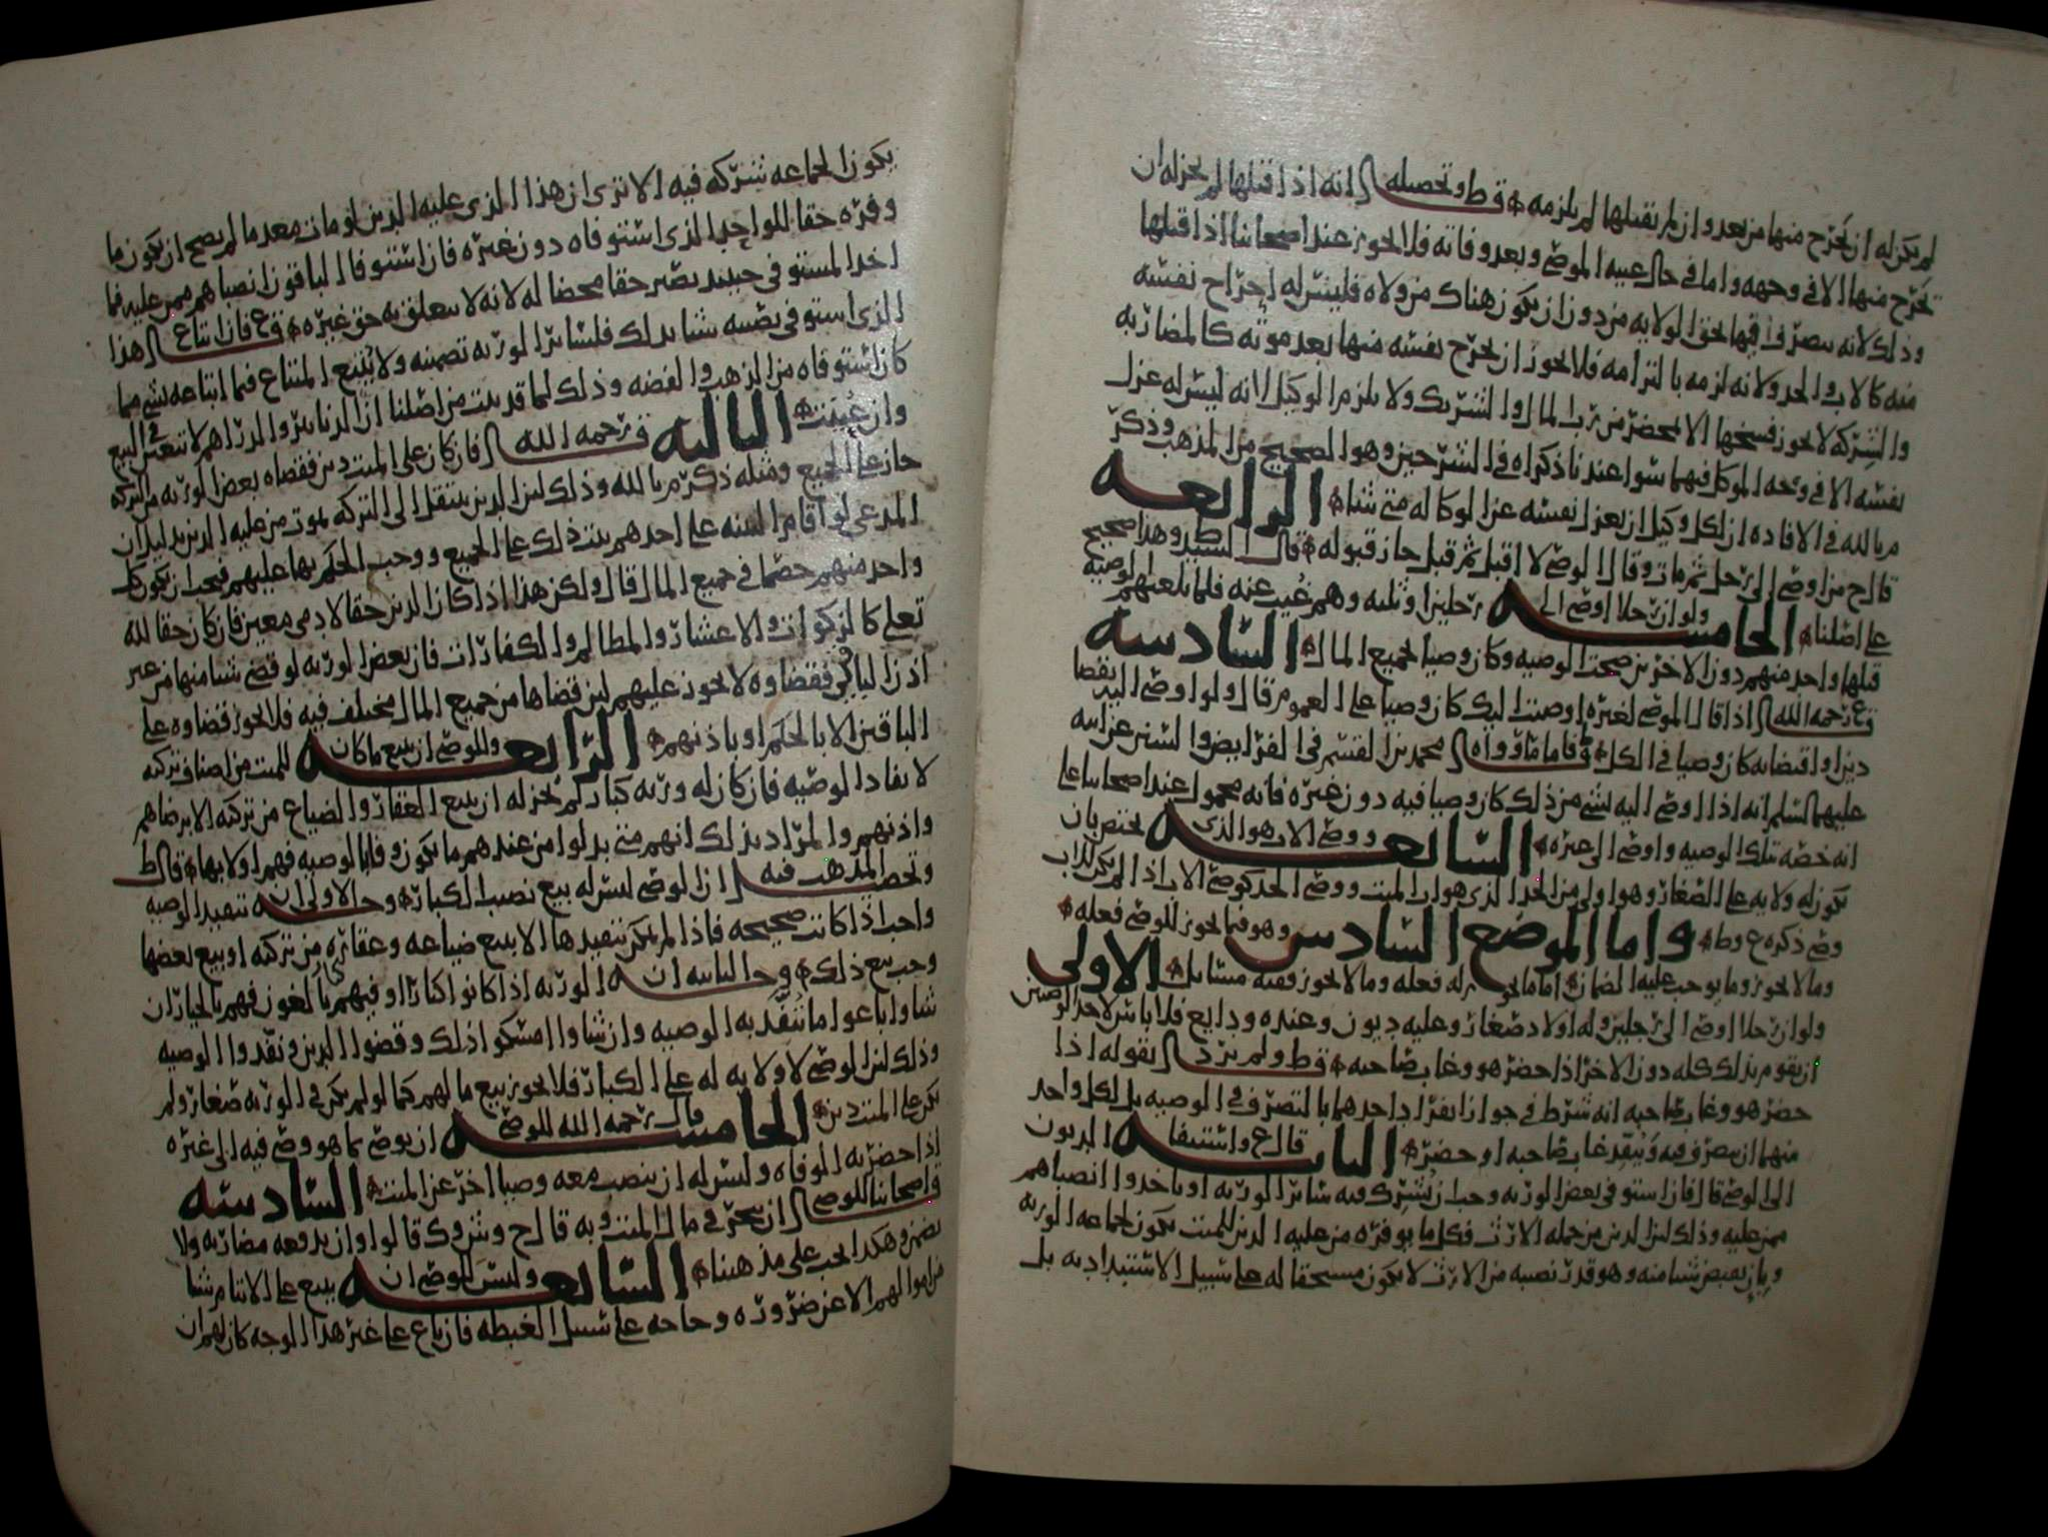 لم يكن له ان يخرج منها من بعد وان لم يقبلها لم يلزمه قط وتحصيله انه اذا قبلها لم يجز له ان
يخرج منها الا في وجهه واما في حال غيبة الموصي وبعد وفاته فلا يجوز عند اصحابنا اذا قبلها
وذلك لانه يتصرف فيها بحق الولاية من دون ان يكون هناك من ولاه فليس له اخراج نفسه
منه كالاب والجد ولانه لزمه بالتزامه فلا يجوز ان يخرج نفسه منها بعد موته كالمضاربه
والشركه لا يجوز فسخها الا بمحضر من رب المال والشريك ولا يلزم الوكيل لانه ليس له عزل
نفسه الا في وجه الموكل فهما سوا عندنا ذكراه في الشرحين وهو الصحيح من المذهب وذكر
م بالله في الافاده ان لكل وكيل ان يعزل نفسه عن الوكاله متى شا الرابعه
قال ح من اوصى الى رجل ثم مات وقال الوصي لا اقبل ثم قبل جاز قبوله قال السيد وهذا صحيح
على اصلنا الخامسه ولو ان رجلا اوصى الى رجلين او ثلثه وهم غيب عنه فلما بلغتهم الوصيه
قبلها واحد منهم دون الاخرين صحت الوصيه وكان وصيا لجميع المال السادسه
ع رحمه الله اذا قال الموصي لغيره اوصيت اليك كان وصيا على العموم قال ولو اوصى اليه بقضا
دين او اقتضايه كان وصيا في الكل فاما ما رواه محمد بن القسم في الفرايض والسنن عن ابيه
عليهما السلم انه اذا اوصى اليه بشي من ذلك كان وصيا فيه دون غيره فانه محمول عند اصحابنا على
انه خصه بتلك الوصيه واوصى الى غيره السابعه ووصي الاب هو الذي يختص بان
يكون له ولايه على الصغار وهو اولى من الجد الذي هو اب الميت ووصي الجد كوصي الاب اذا لم يكن للاب
وصي ذكره ع وط واما الموضع السادس وهو فيما يجوز للوصي فعله
وما لا يجوز وما يوجب عليه الضمان اما ما يجوز له فعله وما لا يجوز ففيه مسايل الاولى
ولو ان رجلا اوصى الى رجلين وله اولاد صغار وعليه ديون وعنده ودايع فلا باس لاحد الوصيين
ان يقوم بذلك كله دون الاخر اذا حضر هو وغاب صاحبه قط ولم يرد بقوله اذا
حضر هو وغاب صاحبه انه شرط في جواز انفراد احدهما بالتصرف في الوصيه بل لكل واحد
منهما ان يتصرف فيه وينفذ غاب صاحبه او حضر الثانيه قال ع واستيفا الديون
الى الوصي قال فان استوفى بعض الورثه وجب ان يشترك فيه سائر الورثه او ياخذوا انصباهم
ممن عليه وذلك لان الدين من جمله الارث فكل ما يوفره من عليه الدين للميت يكون لجماعه الورثه
وبان يقبض شيا منه وهو قدر نصيبه من الارث لا يكون مستحقا له على سبيل الاستبداد به بل
يكون الجماعه شركه فيه الا ترى ان هذا الذي عليه الدين لو مات معدما لم يصح ان يكون ما
وفره حقا للواحد الذي استوفاه دون غيره فان استوفى الباقون انصباهم ممن عليه فما
اخذ المستوفي حينيذ يصير حقا محضا له لانه لا يتعلق به حق غيره ع فان ابتاع هذا
الذي استوفى نصيبه شيا بذلك فلسائر الورثه تضمينه ولا يتبع المبتاع فيما ابتاعه بشي مما
كان استوفاه من الذهب والفضه وذلك لما قد بينت من اصلنا ان الدنانير والدراهم لا تتعين في البيع
وان عينت الثالثه ع رحمه الله فان كان على الميت دين فقضاه بعض الورثه من التركه
جاز على الجميع ومثله ذكر م بالله وذلك لان الدين ينتقل الى التركه بموت من عليه الدين بدليل ان
المدعي لو اقام البينه على احدهم ثبت ذلك على الجميع ووجب الحكم بها عليهم فيجب ان يكون كل
واحد منهم خصما في جميع المال قال ولكن هذا اذا كان الدين حقا لادمي معين فان كان حقا لله
تعلى كالزكوات والاعشار والمظالم والكفارات فان بعض الورثه لو قضى شيا منها من غير
اذن الباقي فقضاوه لا يجوز عليهم لان قضاها من جميع المال مختلف فيه فلا يجوز قضاوه على
الباقين الا بالحكم او باذنهم الرابعه وللوصي ان يبيع ما كان للميت من اصناف تركته
لانفاد الوصيه فان كان له ورثه كبار لم يجز له ان يبيع العقار والضياع من تركته الا برضاهم
واذنهم والمراد بذلك انهم متى بذلوا من عندهم ما يكون وفا بالوصيه فهم اولى بها قال ط
وتحصيل المذهب فيه ان الوصي ليس له بيع نصيب الكبار وجه الاولى ان تنفيذ الوصيه
واجب اذا كانت صحيحه فاذا لم يمكن تنفيذها الا ببيع ضياعه وعقاره من تركته او بيع بعضها
وجب بيع ذلك وجه الثانيه ان الورثه اذا كانوا كبارا او فيهم بالغون فهم بالخيار ان
شاوا باعوا ما تنفذ به الوصيه وان شاوا امسكوا ذلك وقضوا الدين ونفذوا الوصيه
وذلك لان الوصي لا ولايه له على الكبار فلا يجوز بيع ما لهم كما لو لم يكن في الورثه صغار ولم
يكن على الميت دين الخامسه قال رحمه الله للوصي ان يوصي بما هو وصي فيه الى غيره
اذا حضرته الوفاه وليس له ان ينصب معه وصيا اخر عن الميت السادسه
واصحابنا للوصي ان يتجر في مال الميت وبه قال ح وش وك قالوا وان يدفعه مضاربه ولا
يضمن وهكذا يجب على مذهبنا السابعه وليس للوصي ان يبيع على الايتام شيا
من اموالهم الا عن ضروره وحاجه على سبيل الغبطه فان باع على غير هذا الوجه كان لهم ان